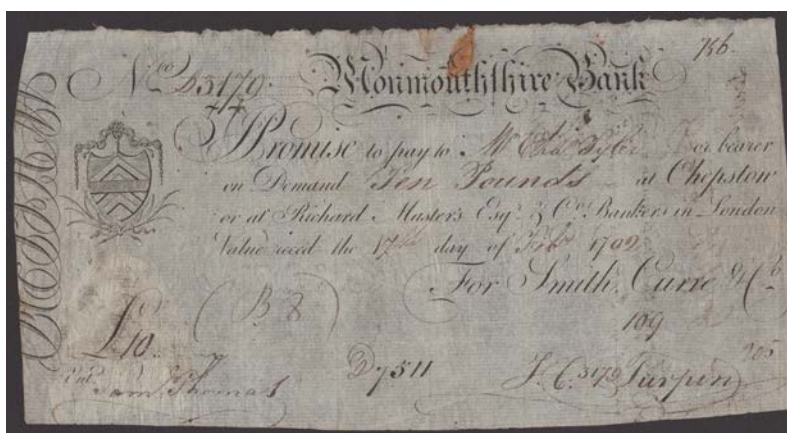 746.
No. D3179. Monmouthshire Bank
I Promise to pay to Mr Tyler or bearer
on Demand Ten Pounds at Chepstow
or at Richard Masters Esqr. & Co. Bankers in London
Value reced the 17th day of Feb 179
For Smith, Curre & Co.
( B 8 )
109
£10..
205
Ent. Sam Thomas
D7511
J. C. 3179 Turpin